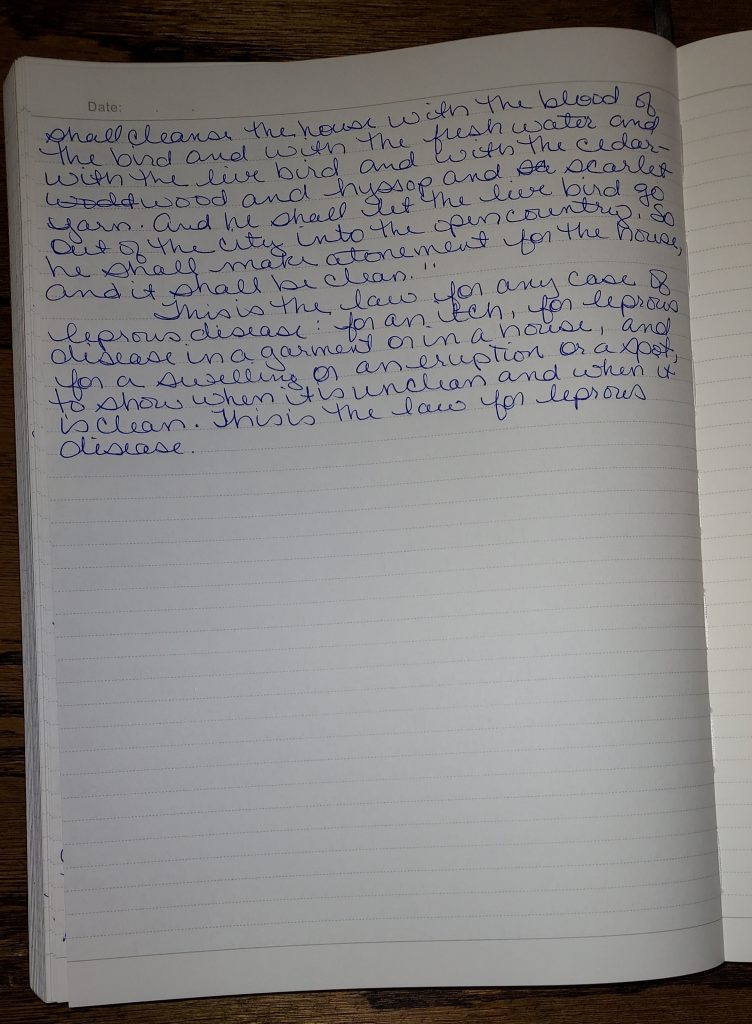 Date:
shall cleanse the house with the blood of
the bird and with the fresh water and
with the live bird and with the cedar-
wood and hyssop and scarlet
yarn. And he shall let the live bird go
out of the city into the open country. So
he shall make atonement for the house,
and it shall be clean."
This is the law for any case of
leprous disease: for an itch, for leprous
disease in a garment or in a house, and
for a swelling or an eruption or a spot,
to show when it is unclean and when it
is clean. This is the law for leprous
disease.